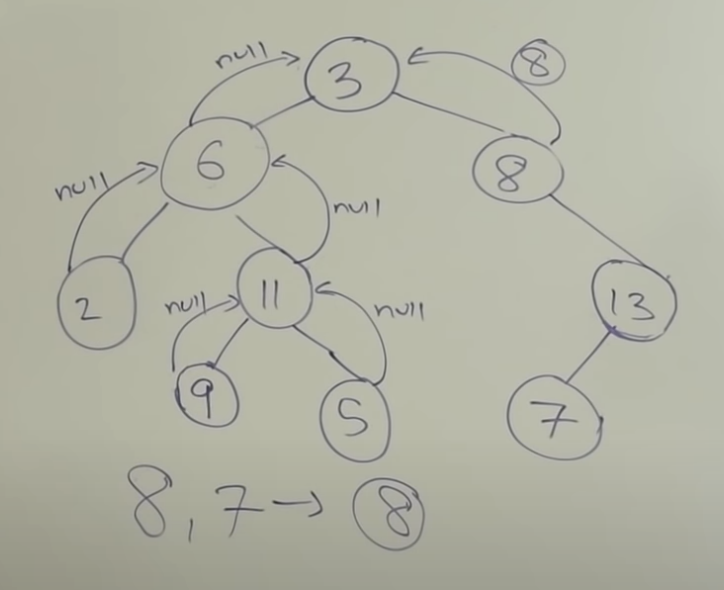 null
3
8
null
6
8
null
2
11
13
null
null
9
5
7
8, 7 → 8